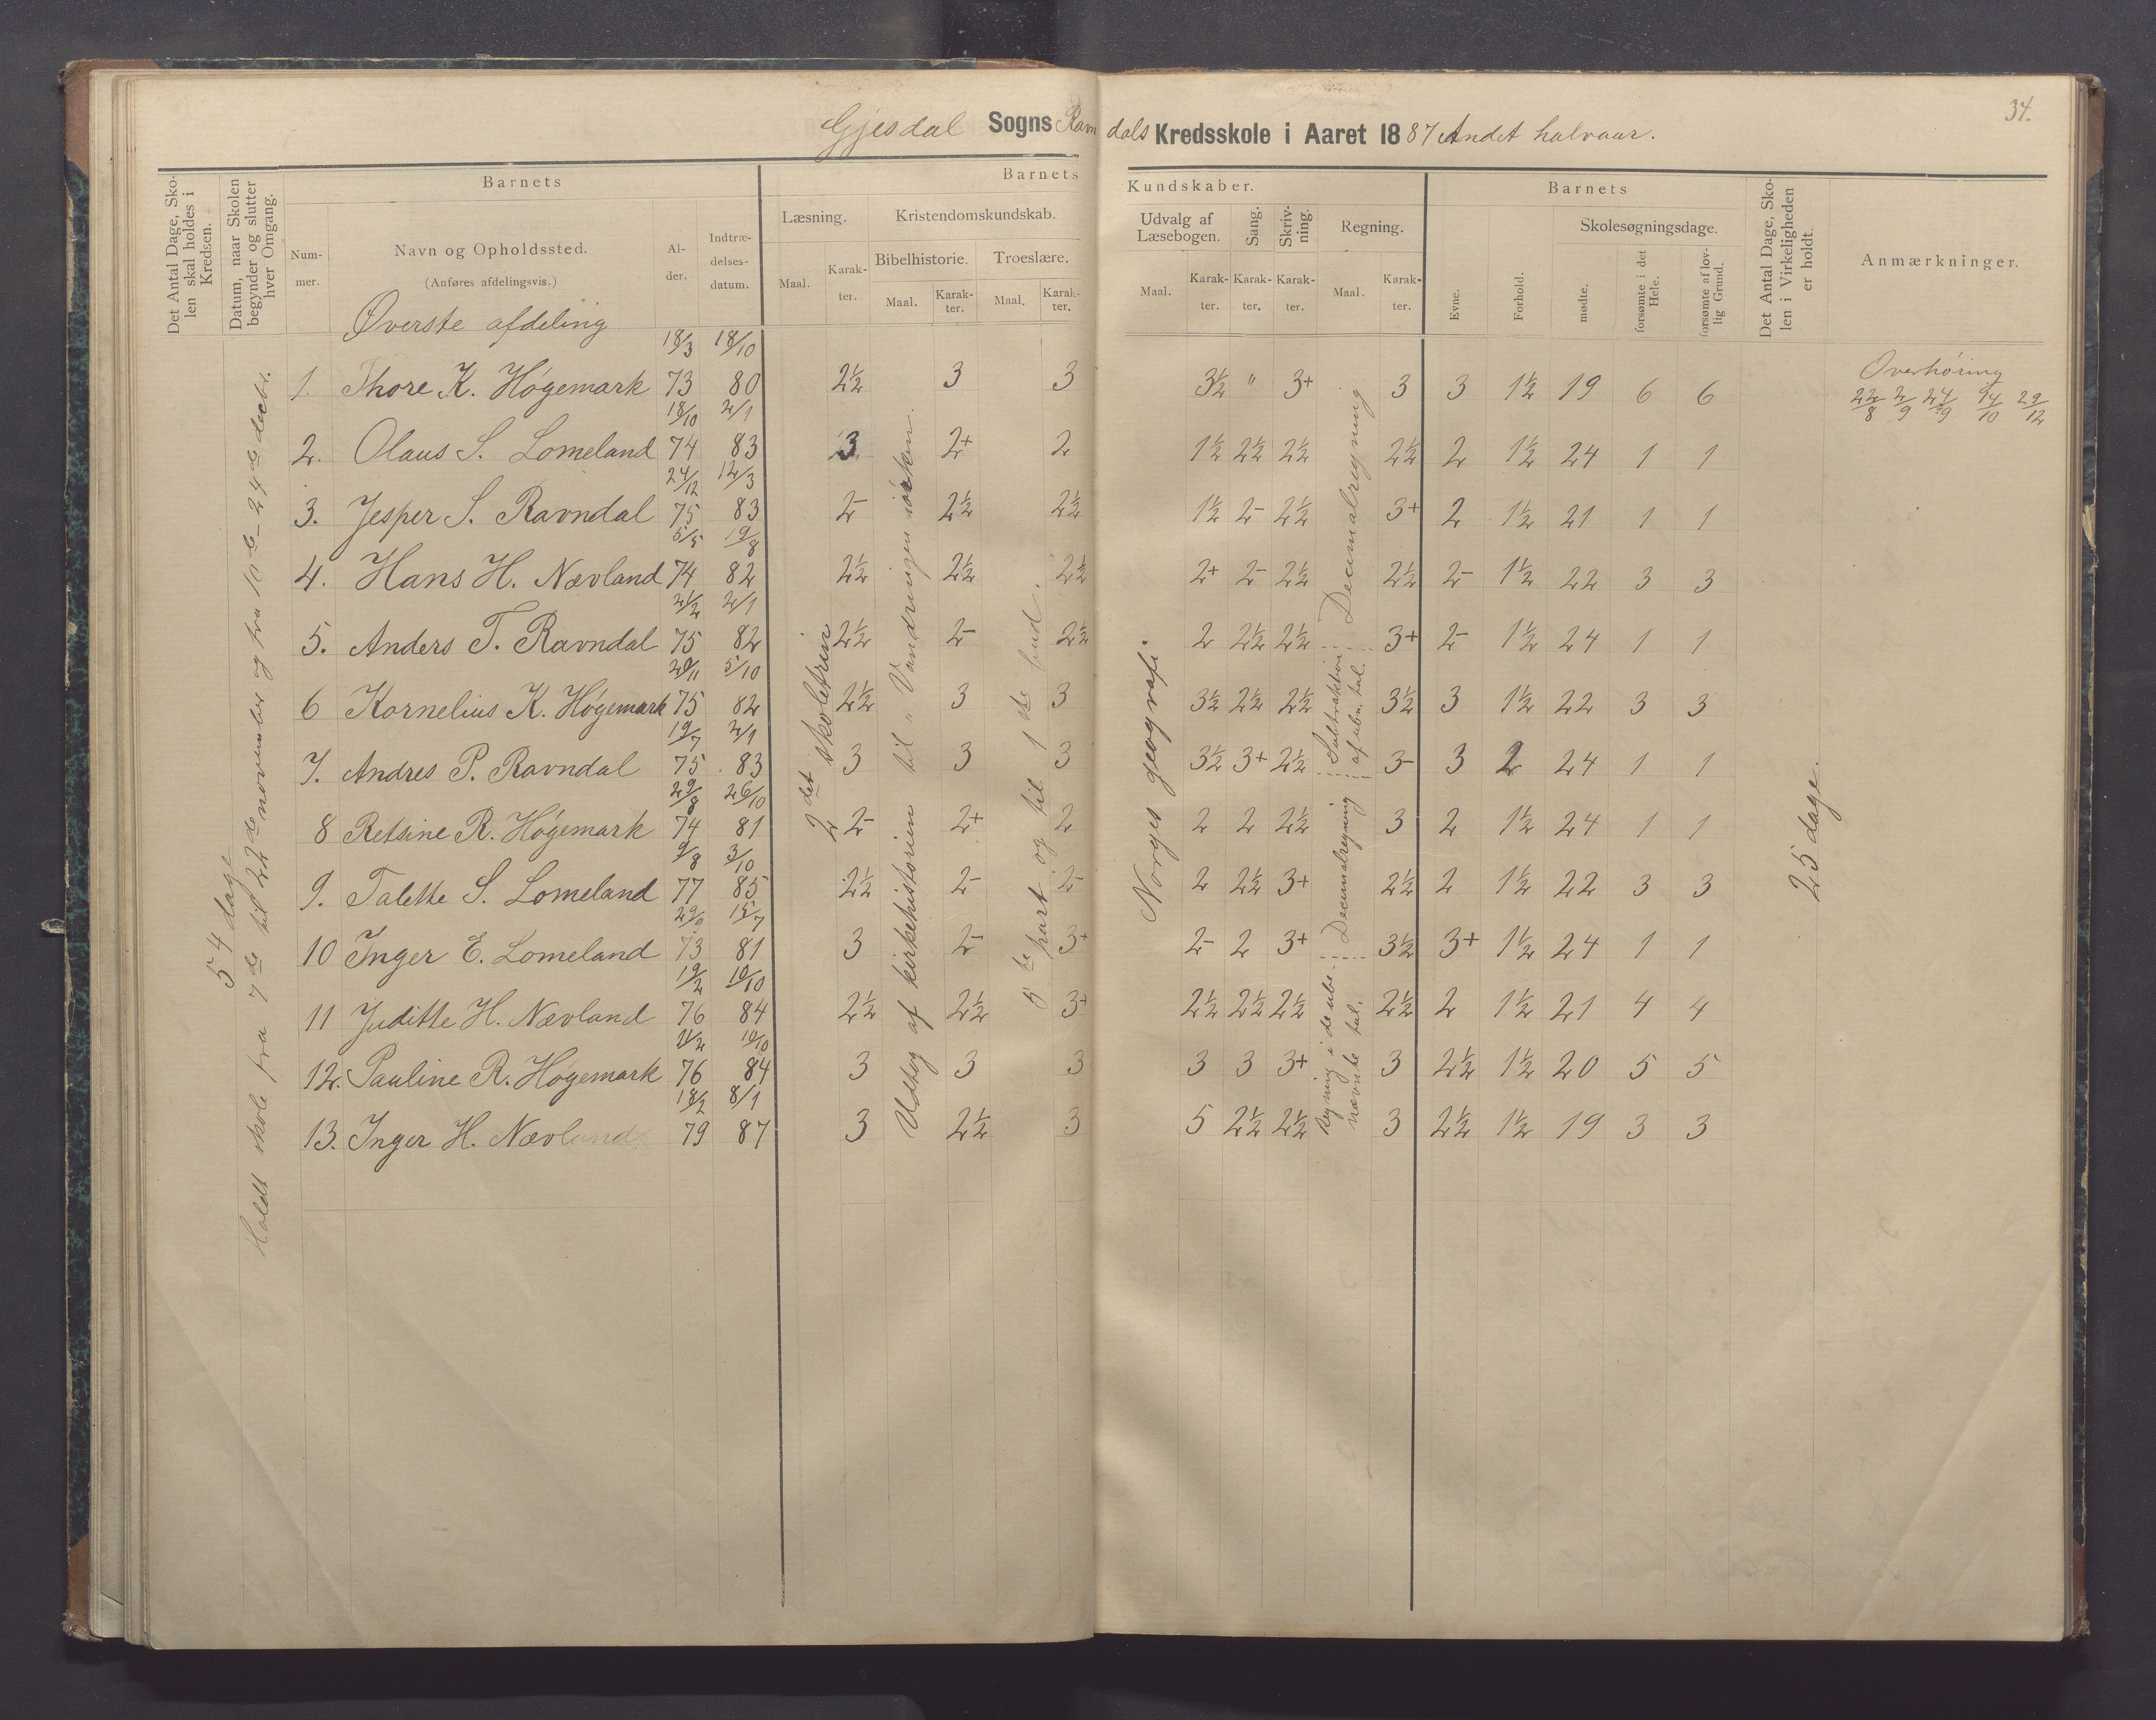 34.
Gjesdal Sogns Ravndals Kredsskole i Aaret 1887 Andet halvaar.
Det Antal Dage, Skolen skal holdes i Kredsen.
Datum, naar Skolen begynder og slutter hver Omgang.
Barnets
Nummer.
Navn og Opholdssted.
(Anføres afdelingsvis.)
Alder.
Indtrædelsesdatum.
Barnets Kundskaber.
Læsning.
Maal. Karakter.
Kristendomskundskab.
Bibelhistorie. Troeslære.
Maal. Karakter. Maal. Karakter.
Udvalg af Læsebogen.
Maal. Karakter.
Sang.
Karakter.
Skrivning.
Karakter.
Regning.
Maal. Karakter.
Barnets
Evne.
Forhold.
Skolesøgningsdage.
mødte.
forsømte i det Hele.
forsømte af lovlig Grund.
Det Antal Dage, Skolen i Virkeligheden er holdt.
Anmærkninger.
Øverste afdeling
1. Thore K. Høgemark 18/3 73 18/10 80 2½ 3 3 3½ " 3+ 3 3 1½ 19 6 6
2. Olaus S. Lomeland 18/10 74 2/1 83 3 2+ 2 1½ 2½ 2½ 2½ 2 1½ 24 1 1
3. Jesper S. Ravndal 24/12 75 12/3 83 2- 2½ 2½ 1½ 2- 2½ 3+ 2 1½ 21 1 1
4. Hans H. Nævland 5/5 74 19/8 82 2½ 2½ 2½ 2+ 2- 2½ 2½ 2- 1½ 22 3 3
5. Anders T. Ravndal 75 2/1 82 2½ 2- 2½ 2 2½ 2½ 3+ 2- 1½ 24 1 1
6 Kornelius K. Høgemark 75 5/10 82 2½ 3 3 3½ 2½ 2½ 3½ 3 1½ 22 3 3
7. Andres P. Ravndal 19/7 75 2/1 83 3 3 3 3½ 3+ 2½ 3- 3 2 24 1 1
8 Retsine R. Høgemark 29/8 74 26/10 81 2- 2+ 2 2 2 2½ 3 2 1½ 24 1 1
9. Talette S. Lomeland 9/8 77 3/10 85 2½ 2- 2- 2 2½ 3+ 2½ 2 1½ 22 3 3
10 Inger E. Lomeland 29/9 73 15/7 81 3 2- 3+ 2- 2 3+ 3½ 3+ 1½ 24 1 1
11 Juditte H. Nævland 19/2 76 10/10 84 2½ 2½ 3+ 2½ 2½ 2½ 2½ 2 1½ 21 4 4
12. Pauline R. Høgemark 76 10/10 84 3 3 3 3 3 3+ 3 2½ 1½ 20 5 5
13. Inger H. Nævland 18/2 79 8/1 87 3 2½ 3 5 2½ 2½ 3 2½ 1½ 19 3 3
54 dage
Holdt skole fra 7de til 22de november og fra 10de - 24de decbr.
2det skoletrin
Udtog af kirkehistorien til "Vandringen i ørken.
5te part og til 1ste bud.
Norges geografi.
Decimalregning
Subtraktion af ubn. tal.
Decimalregning
Regning i de ubenævnte tal.
25 dage.
Overhøring
22/8 2/9 24/9 14/10 29/12